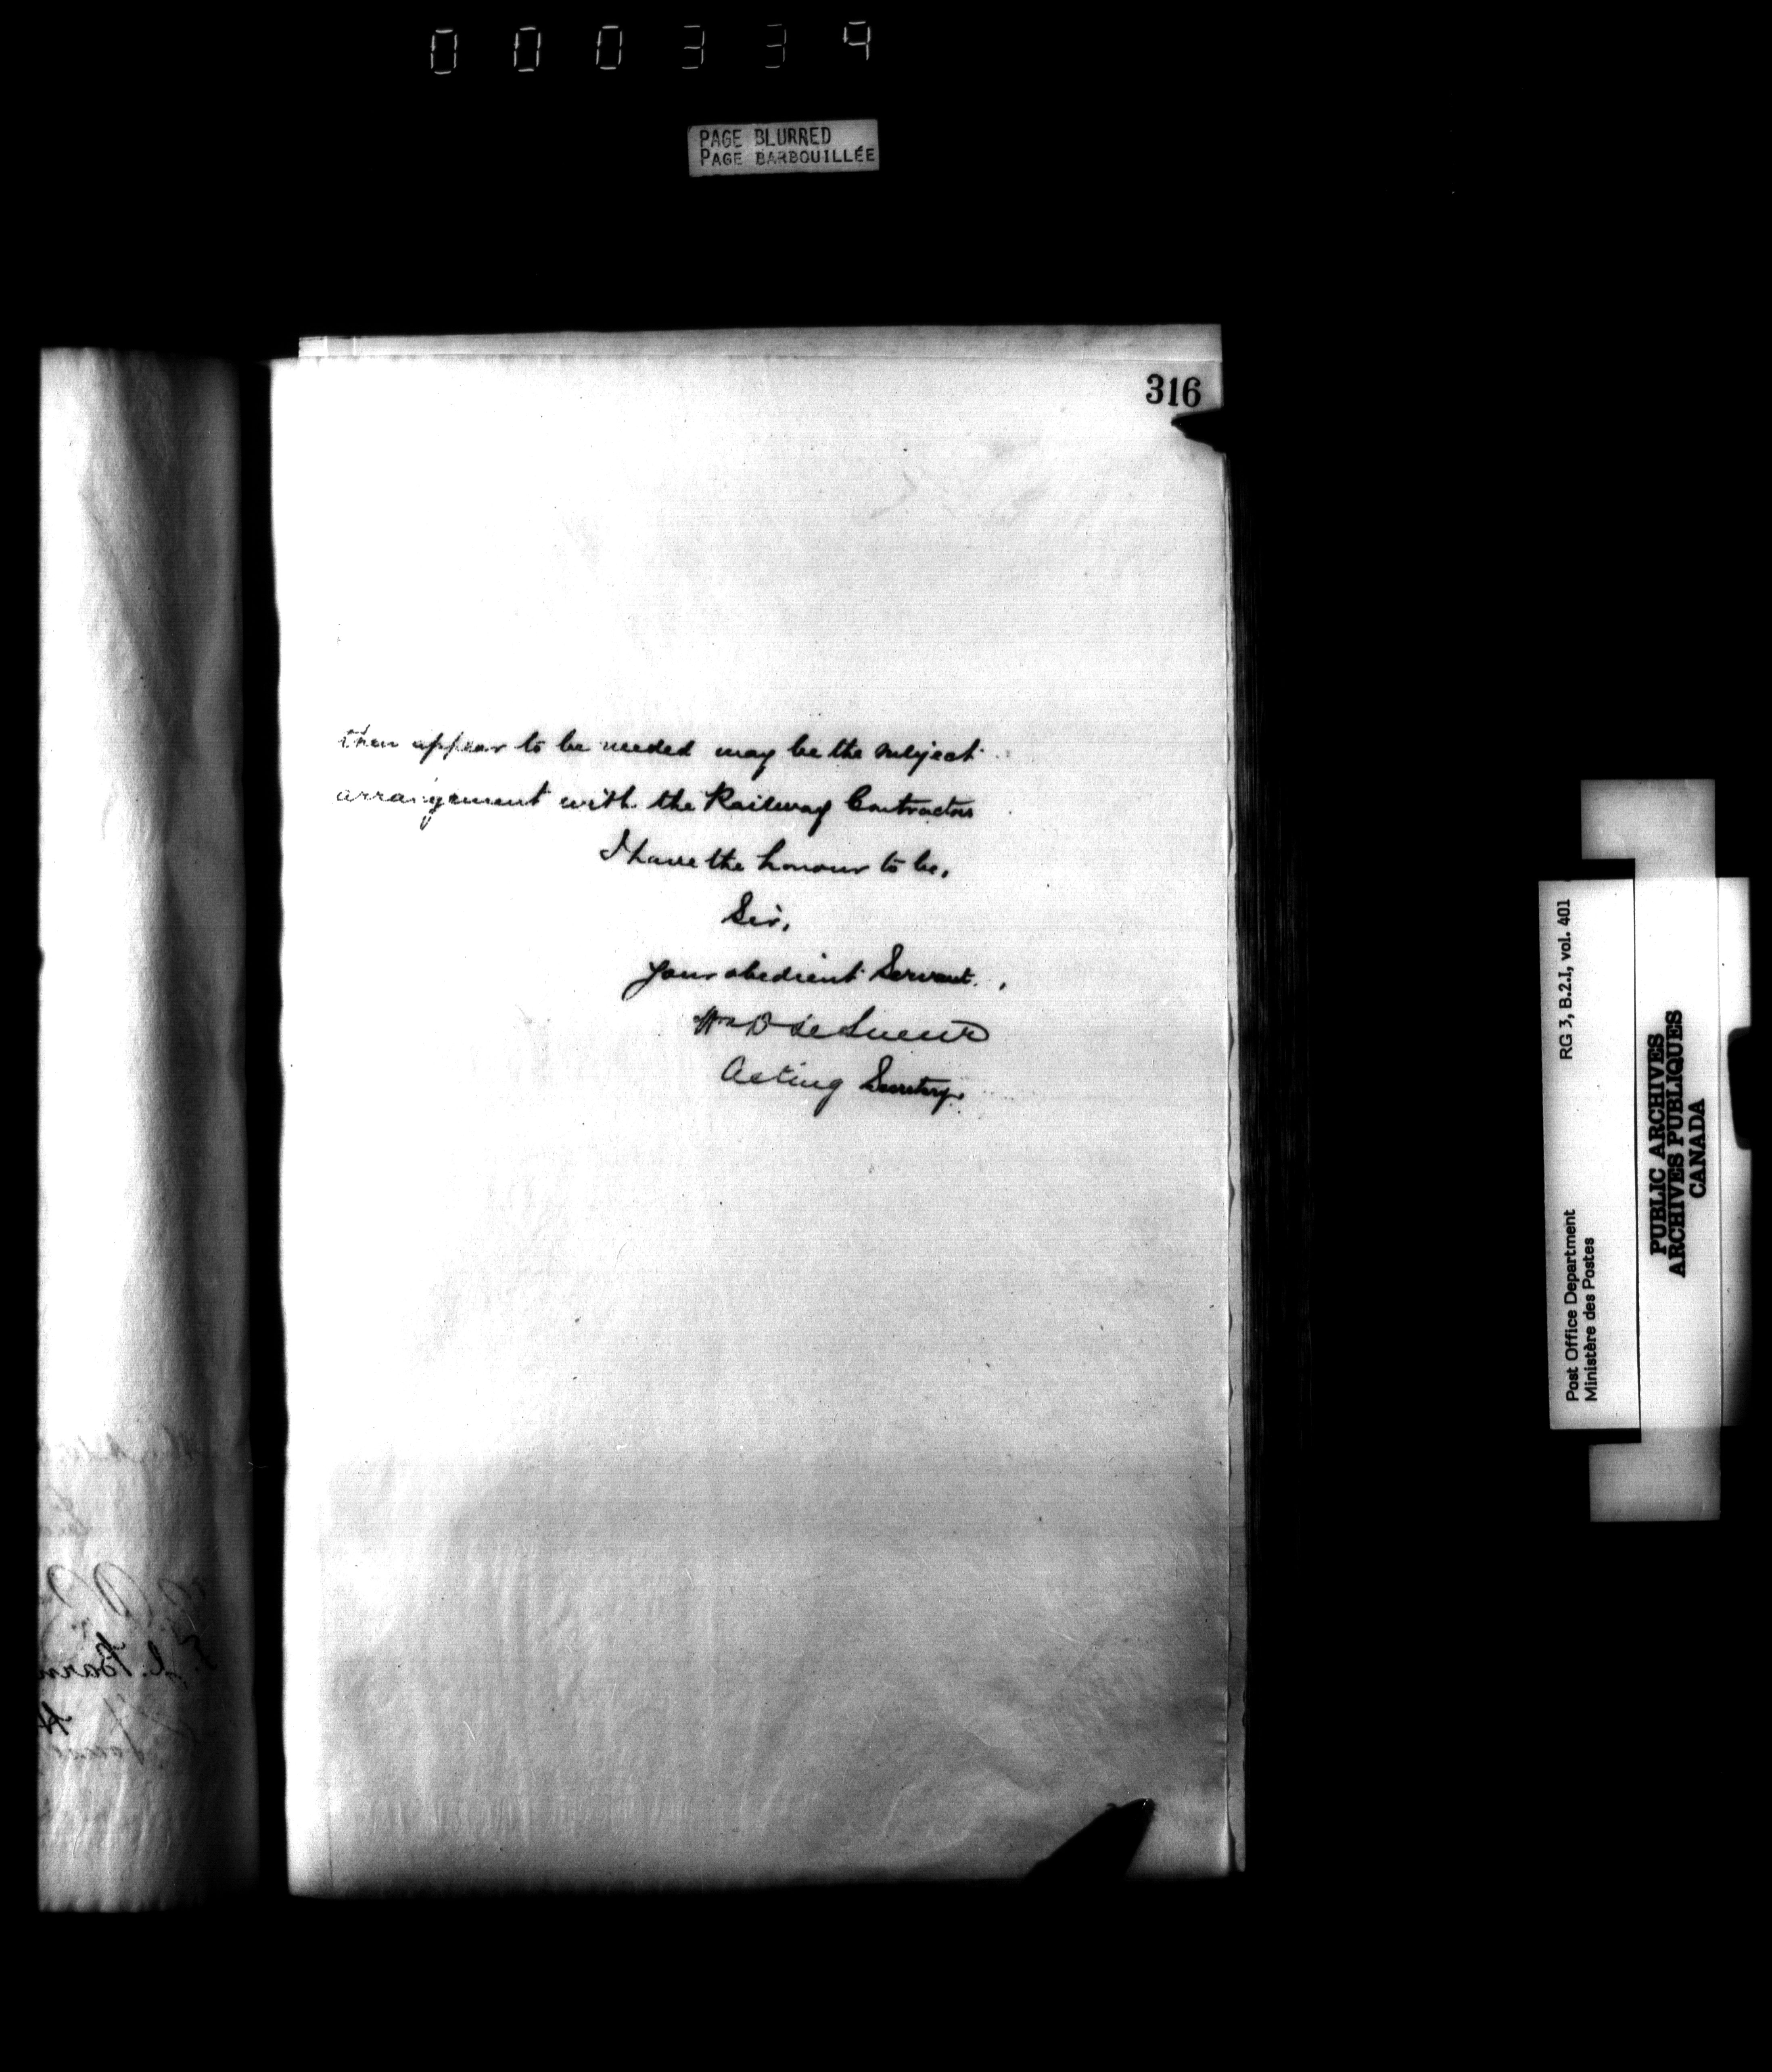 000334
PAGE BLURRED
PAGE BARBOUILLÉE
316
then appear to be needed may be the subject
arrangement with the Railway Contractors
I have the honour to be,
Sir,
Your obedient Servant,
Wm D Le Sueur
Acting Secretary.
RG 3, B.2.I, vol. 401
Post Office Department
Ministère des Postes
PUBLIC ARCHIVES
ARCHIVES PUBLIQUES
CANADA